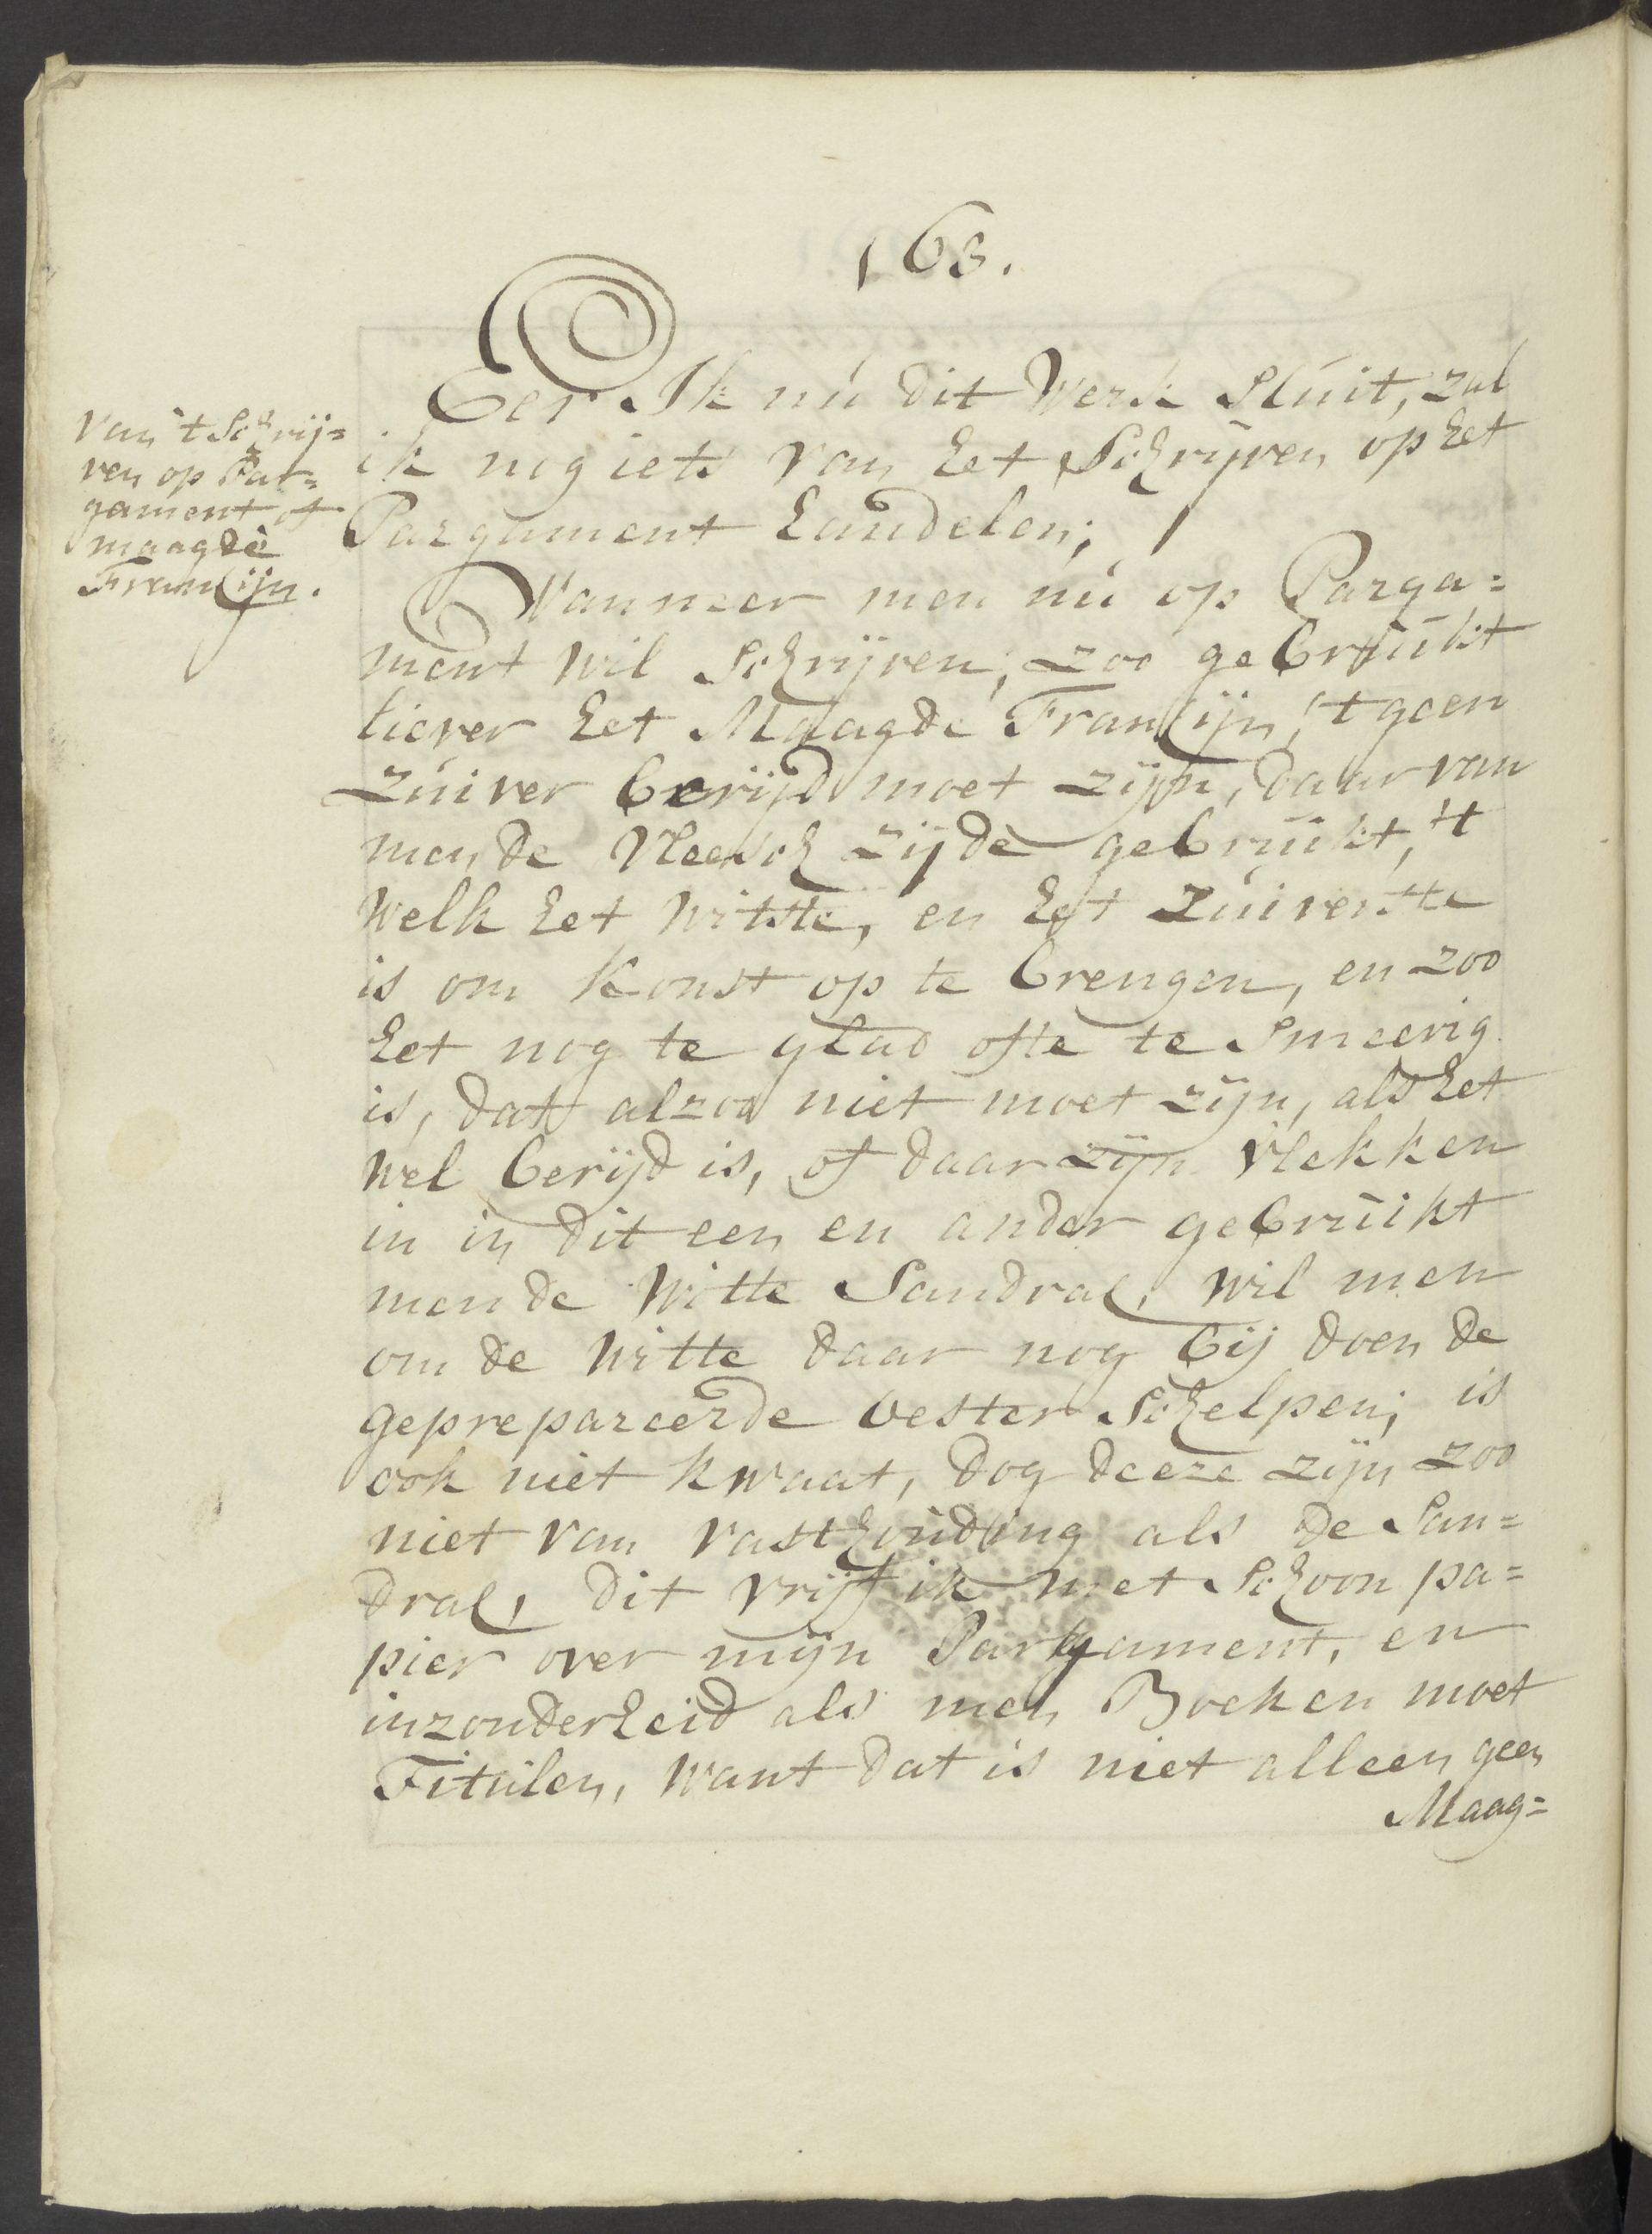 163.
Van 't Schrij=
ven op Par=
gament of
maagde
Franchijn.
Eer Ik nú dit Werk Slúit, zal
ik nog iets van het Schrijven op het
Pargament handelen;
Wanneer men nú op Parga=
ment wil Schrijven, zoo gebrúikt
liever het Maagde Franchijn, 't geen
zúiver berijd moet zijn, daar van
men de Vleesch zijde gebrúikt, 't
Welk het Witste, en het Zúiverste
is om Konst op te brengen, en zoo
het nog te glad ofte te Smeerig
is, dat alzoo niet moet zijn, als het
wel berijd is, of daar zijn vlekken
in in dit een en ander gebrúikt
men de Witte Sandrac, Wil men
om de Witte daar nog bij doen de
geprepareerde oester Schelpen; is
ook niet kwaat, dog deeze zijn zoo
niet van vasthoúding als de San=
drac, dit vrijf ik met Schoon pa=
pier over mijn Pargament, en
inzonderheid als men Boeken moet
Titúlen, want dat is niet alleen geen
Maag=